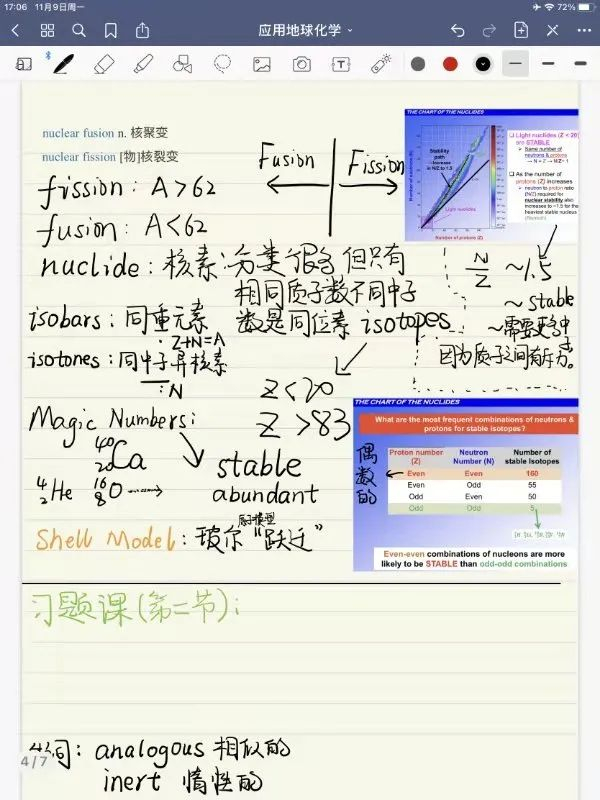 17:06 11月9日周一
72%
应用地球化学
nuclear fusion n. 核聚变
nuclear fission [物]核裂变
Fusion
Fission
fission: A>62
fusion: A<62
THE CHART OF THE NUCLIDES
Light nuclides (Z < 20) are STABLE
Same number of neutrons & protons
→ N = Z → N/Z= 1
As the number of protons (Z) increases
neutron to proton ratio (N/Z) required for nuclear stability also increases to ~1.5 for the heaviest stable nucleus
Stability path
increase in N/Z to 1.5
Light nuclides
Number of protons (Z)
nuclide: 核素: 分类很多 但只有
相同质子数不同中子
数是同位素 isotopes
N/Z ~1.5
~ stable
~需要更多中子
因为质子之间有斥力。
isobars: 同重元素
· Z+N=A
isotones: 同中子异核素
N
Z<20
Z>83
Magic Numbers:
40 20 Ca
4 2 He 16 8 O
stable
abundant
Shell Model: 玻尔“跃迁”
原子模型
THE CHART OF THE NUCLIDES
What are the most frequent combinations of neutrons & protons for stable isotopes?
偶数的
Proton number (Z) Neutron Number (N) Number of stable isotopes
Even Even 160
Even Odd 55
Odd Even 50
Odd Odd 5
Even-even combinations of nucleons are more likely to be STABLE than odd-odd combinations
习题课(第二节):
词: analogous 相似的
inert 惰性的
4/7